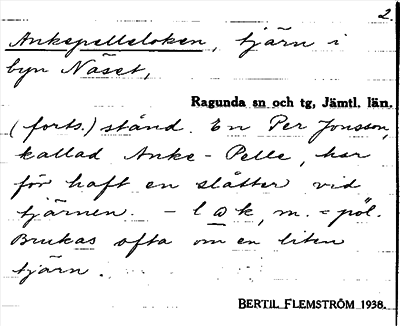 2.
Ankepelleloken, tjärn i
byn Näset,
Ragunda sn och tg, Jämtl. län.
(forts.) stånd. En Per Jonsson,
kallad Anke-Pelle, har
för haft en slåtter vid
tjärnen. – l a k, m. = pöl.
Brukas ofta om en liten
tjärn.
BERTIL FLEMSTRÖM 1938.